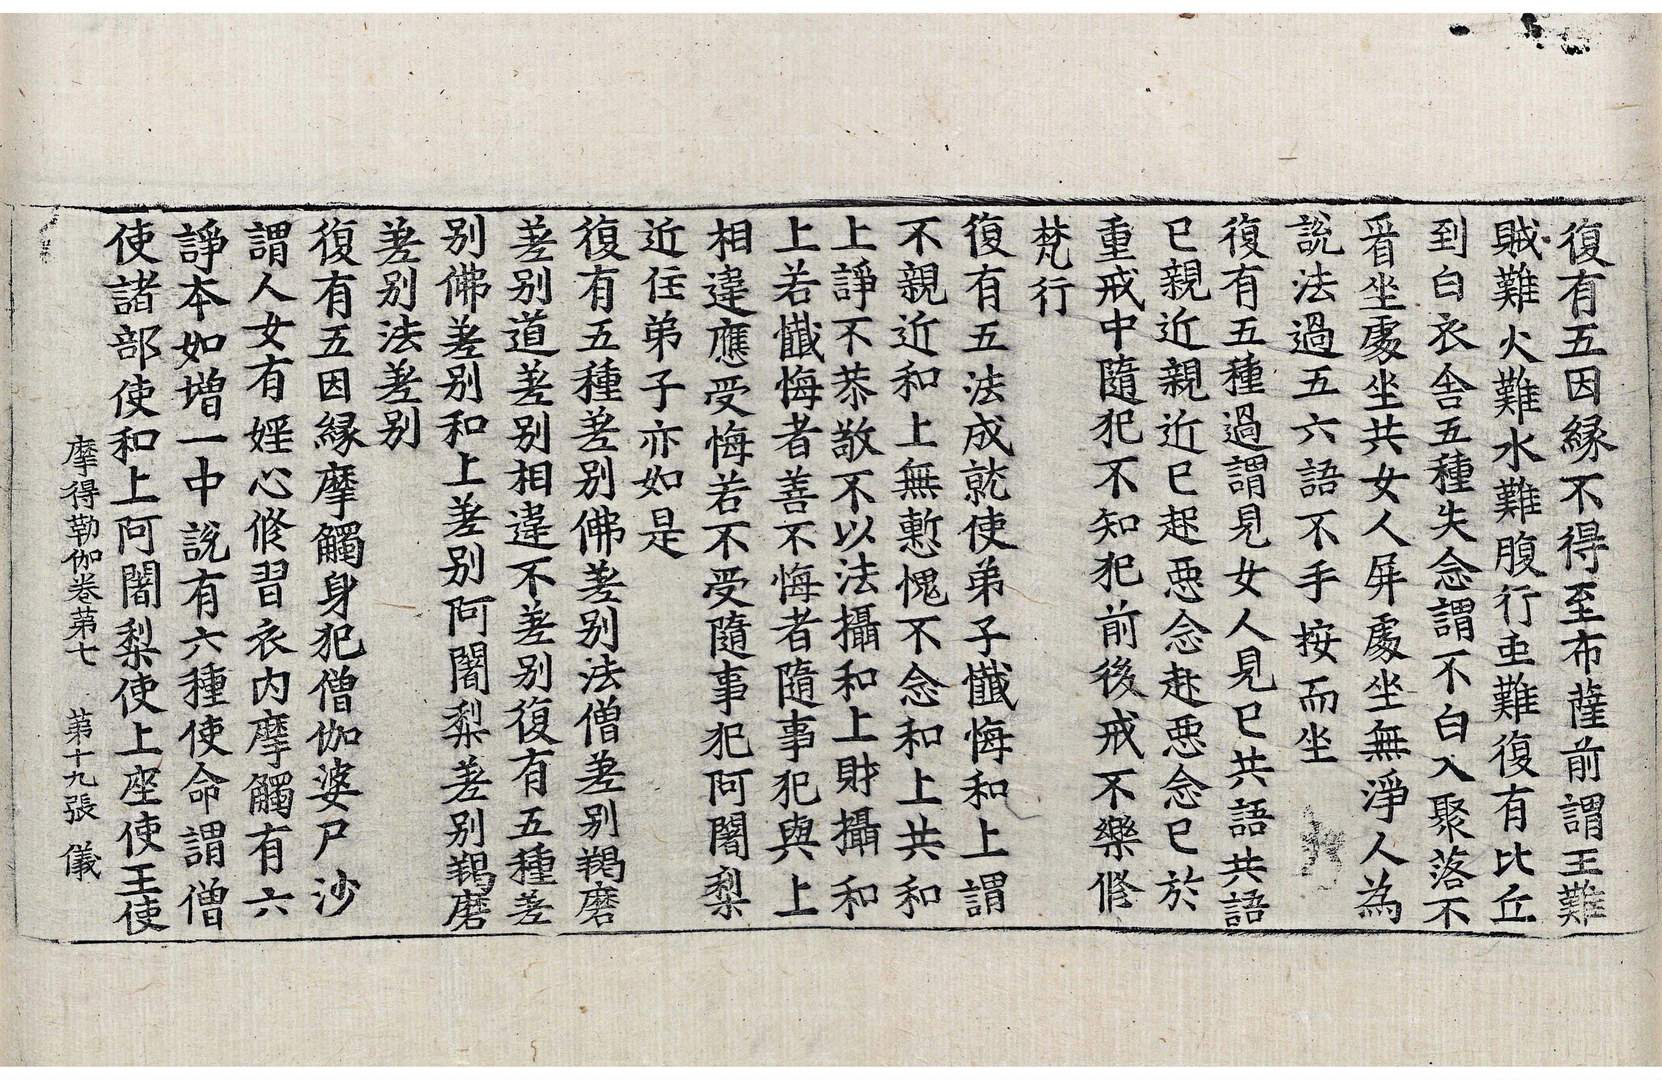 復有五因緣不得至布薩前謂王難
賊難火難水難腹行䖝難復有比丘
到白衣舍五種失念謂不白入聚落不
㸔坐䖏坐共女人屏䖏坐無淨人為
說法過五六語不手按而坐
復有五種過謂見女人見已共語共語
已親近親近已起惡念起惡念已於
重戒中隨犯不知犯前後戒不樂脩
梵行
復有五法成就使弟子懺悔和上謂
不親近和上無慙愧不念和上共和
上諍不恭敬不以法攝和上財攝和
上若懺悔者善不悔者隨事犯與上
相違應受悔若不受隨事犯阿闍梨
近住弟子亦如是
復有五種差別佛差別法僧差別羯磨
差別道差別相違不差別復有五種差
別佛差別和上差別阿闍梨差別羯磨
差別法差別
復有五因緣摩觸身犯僧伽婆尸沙
謂人女有婬心脩習衣内摩觸有六
諍本如增一中說有六種使命謂僧
使諸部使和上阿闍梨使上座使王使
摩得勒伽卷第七 第十九張 儀